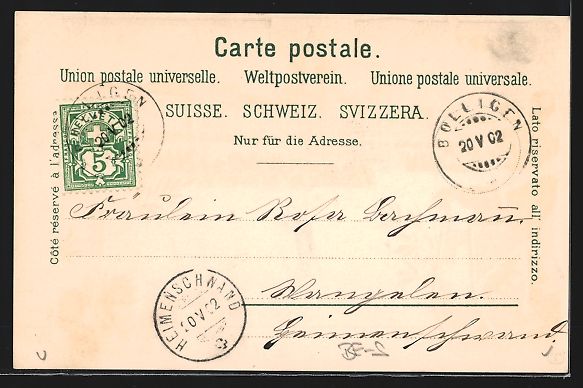 Carte postale.
Union postale universelle. Weltpostverein. Unione postale universale.
SUISSE. SCHWEIZ. SVIZZERA.
Nur für die Adresse.
Côté réservé à l'adresse
Lato riservato all' indirizzo.
HELVETIA
5
LIGEN
20 V 02
BOLLIGEN
20 V 02
Fräulein Rosa Bachmann
Wangelen.
Heimenschwand
HEIMENSCHWAND
0.V.02